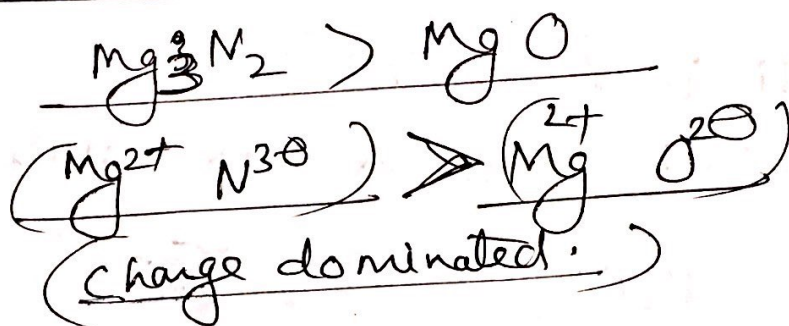 Mg3N2 > MgO
(Mg2+ N3⊖) > (Mg2+ O2⊖)
(Charge dominated.)